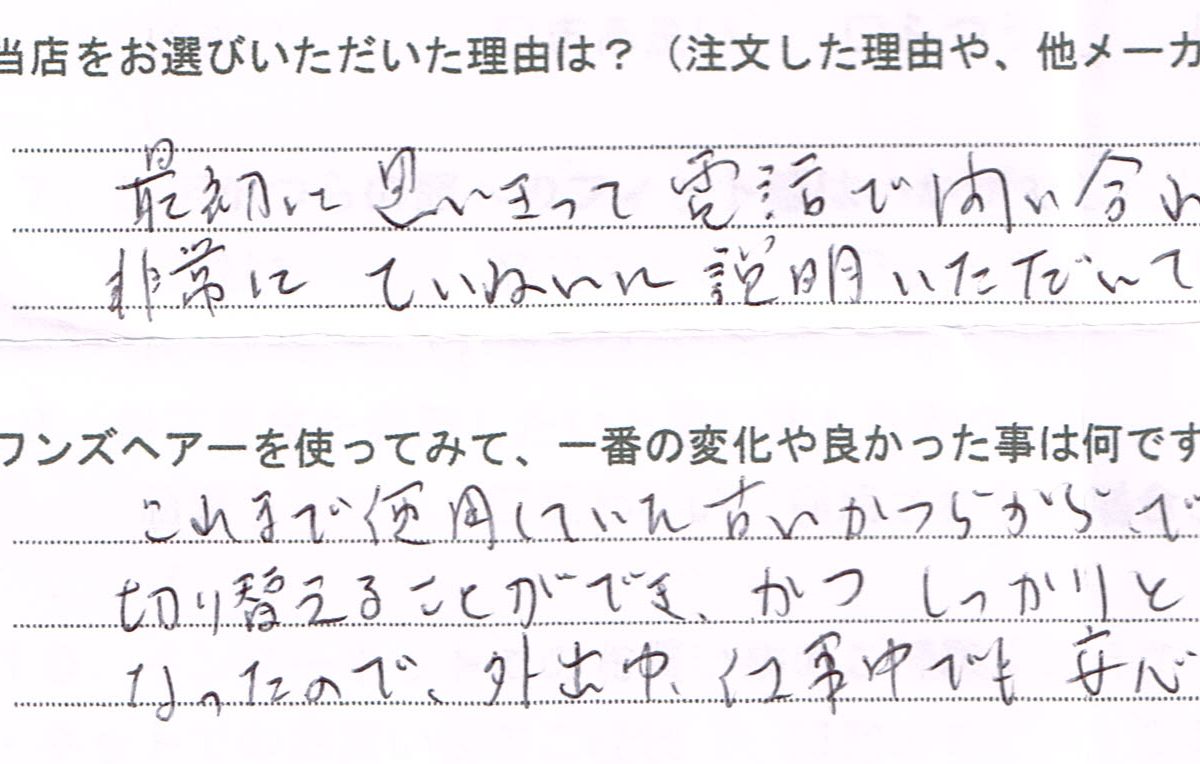 当店をお選びいただいた理由は？（注文した理由や、他メーカ
最初に思いきって電話で問い合わ
非常にていねいに説明いただいて
フンズヘアーを使ってみて、一番の変化や良かった事は何です
これまで使用していた古いかつらから、で
切り替えることができ、かつしっかりと
なったので、外出中、仕事中でも安心